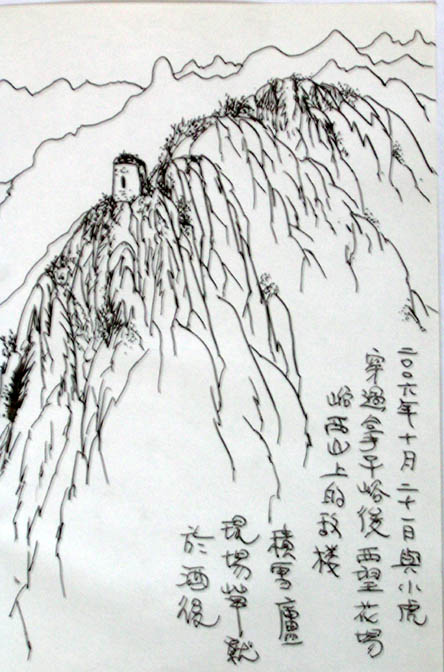 二〇〇六年十月二十一日與小虎
穿過拿子峪後西望花場
峪西山上的敌楼
積雪廬
現場草就
於酒後